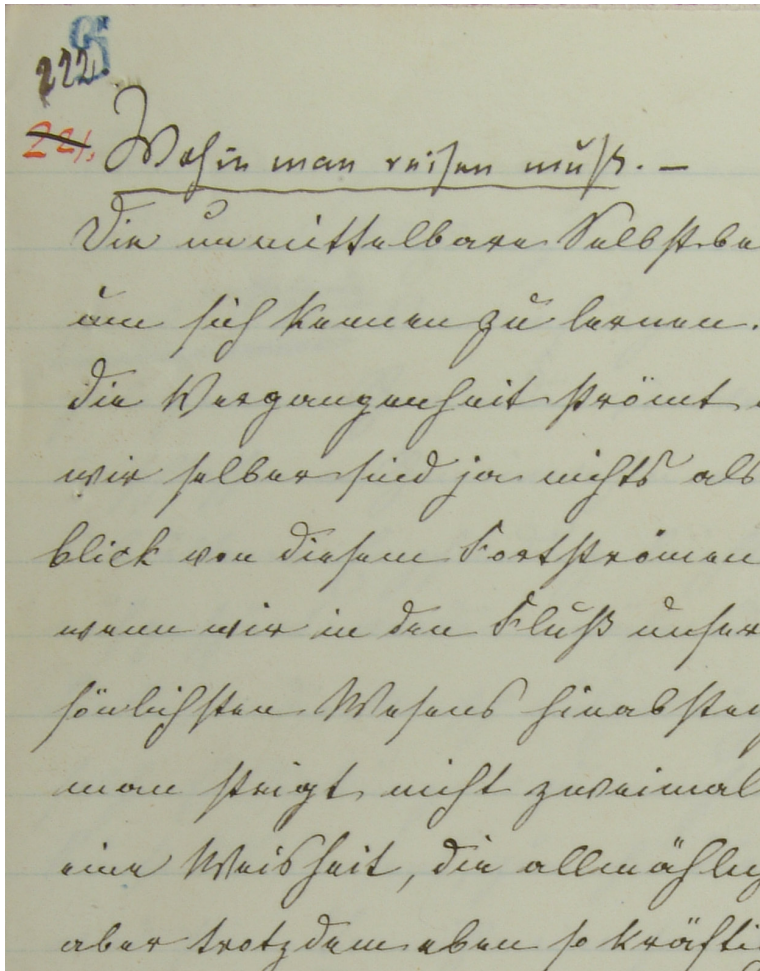 222.
221.
Wohin man reisen muß. –
Die unmittelbare Selbstbe
um sich kennen zu lernen.
die Vergangenheit strömt
wir selber sind ja nichts als
blick von diesem Fortströmen
wenn wir in den Fluß unser
sönlichsten Wesens hinabsteig
man steigt nicht zweimal
eine Weisheit, die allmählig
aber trotzdem eben so kräftig